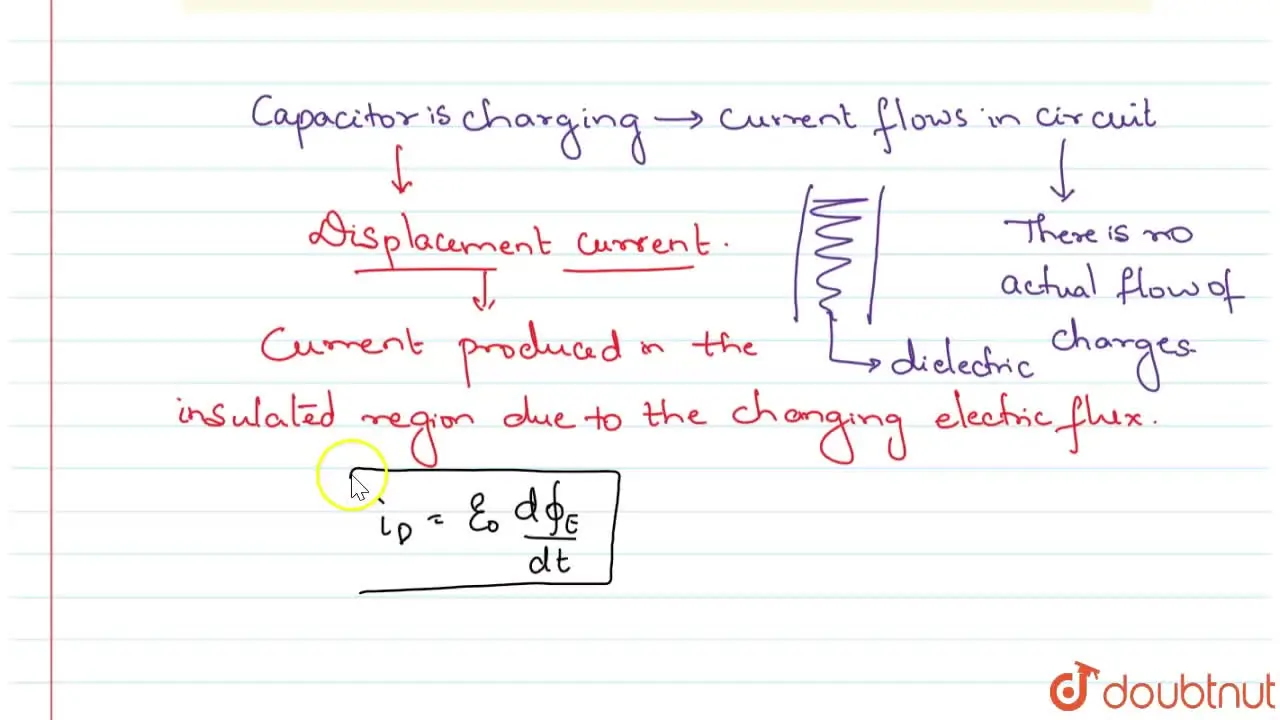 Capacitor is charging → Current flows in circuit
↓ ↓
Displacement current.
There is no
actual flow of
charges.
↓
Current produced in the
→ dielectric
insulated region due to the changing electric flux.
i_D = ε₀ dϕ_E/dt
doubtnut